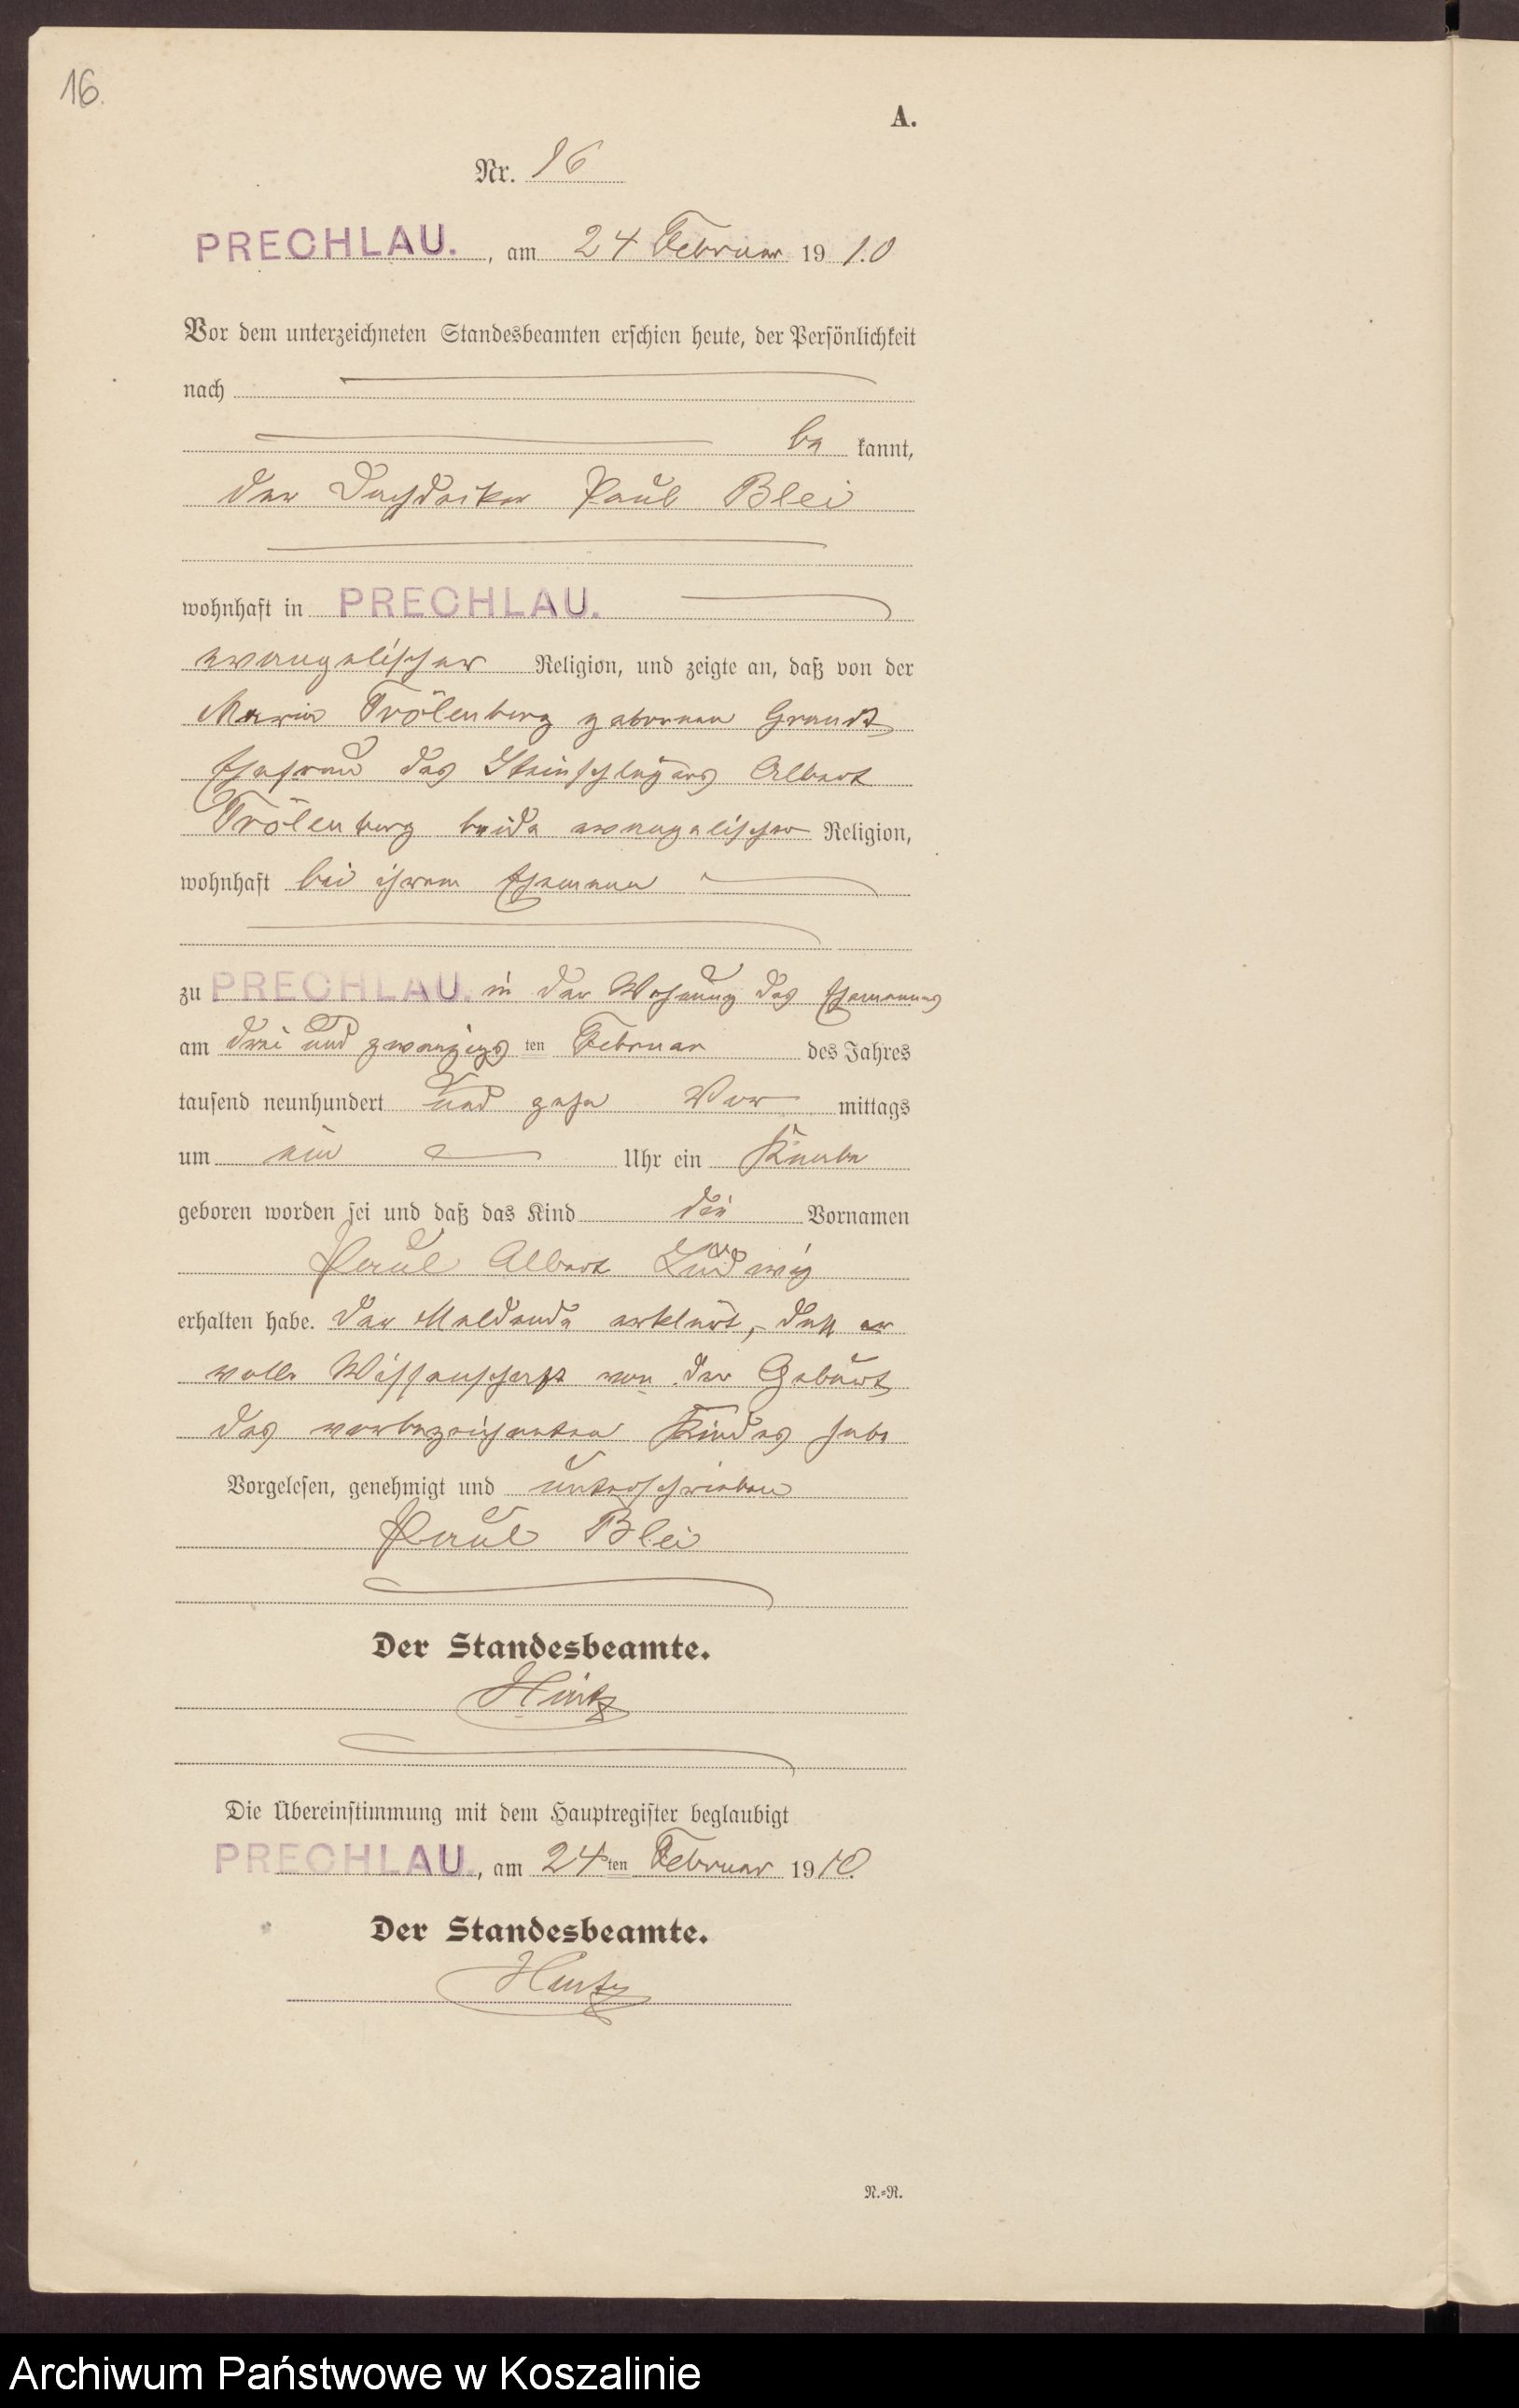 16.
A.
Nr. 16
PRECHLAU. , am 24 Februar 1910
Vor dem unterzeichneten Standesbeamten erschien heute, der Persönlichkeit
nach
be kannt,
der Dachdecker Paul Blei
wohnhaft in PRECHLAU.
evangelischer Religion, und zeigte an, daß von der
Maria Trölenberg geborenen Grandt
Ehefrau des Steinschlägers Albert
Trölenberg beide evangelischer Religion,
wohnhaft bei ihrem Ehemann
zu PRECHLAU. in der Wohnung des Ehemannes
am drei und zwanzigsten Februar des Jahres
tausend neunhundert und zehn Vor mittags
um ein Uhr ein Knabe
geboren worden sei und daß das Kind die Vornamen
Paul Albert Ludwig
erhalten habe. Der Meldende erklärt, daß er
volle Wissenschaft von der Geburt
des vorbezeichneten Kindes habe
Vorgelesen, genehmigt und unterschrieben
Paul Blei
Der Standesbeamte.
Hintz
Die Übereinstimmung mit dem Hauptregister beglaubigt
PRECHLAU., am 24ten Februar 1910.
Der Standesbeamte.
Hintz
N.=R.
Archiwum Państwowe w Koszalinie